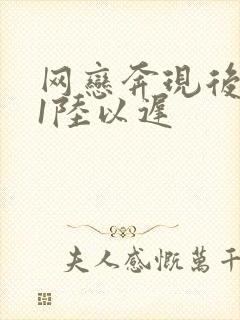 网戀奔現後
1陸以遲
夫人感慨萬千